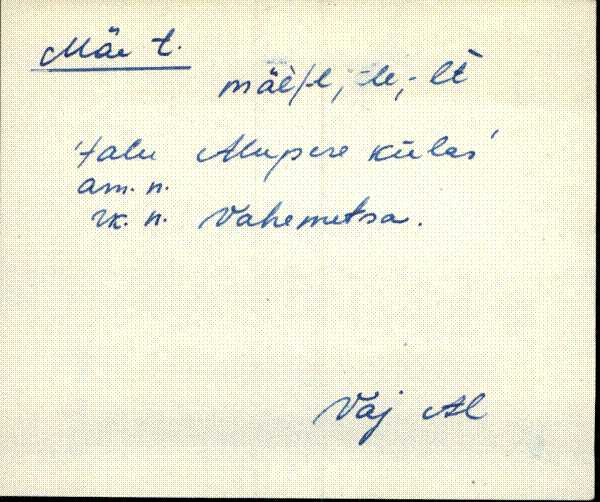 Mäe t.
mäè/l, -le, -lt
'talu Alupere külas'
am. n.
rk. n. Vahemetsa.
Vaj Al